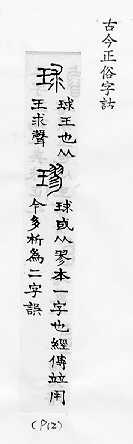 古今正俗字詁
球
球王也从
王求聲
璆
球或从翏本一字也經傳竝用
今多析為二字誤
(P12)